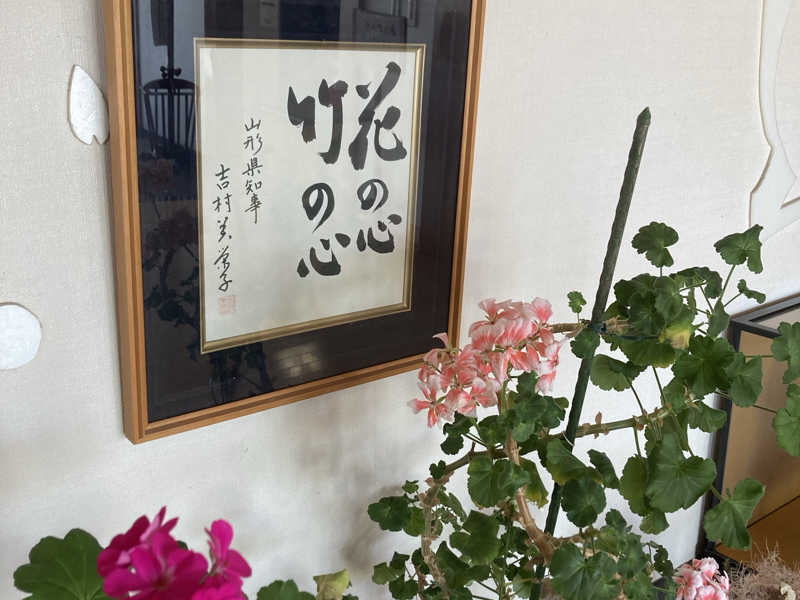 花の心
竹の心
山形県知事
吉村美栄子